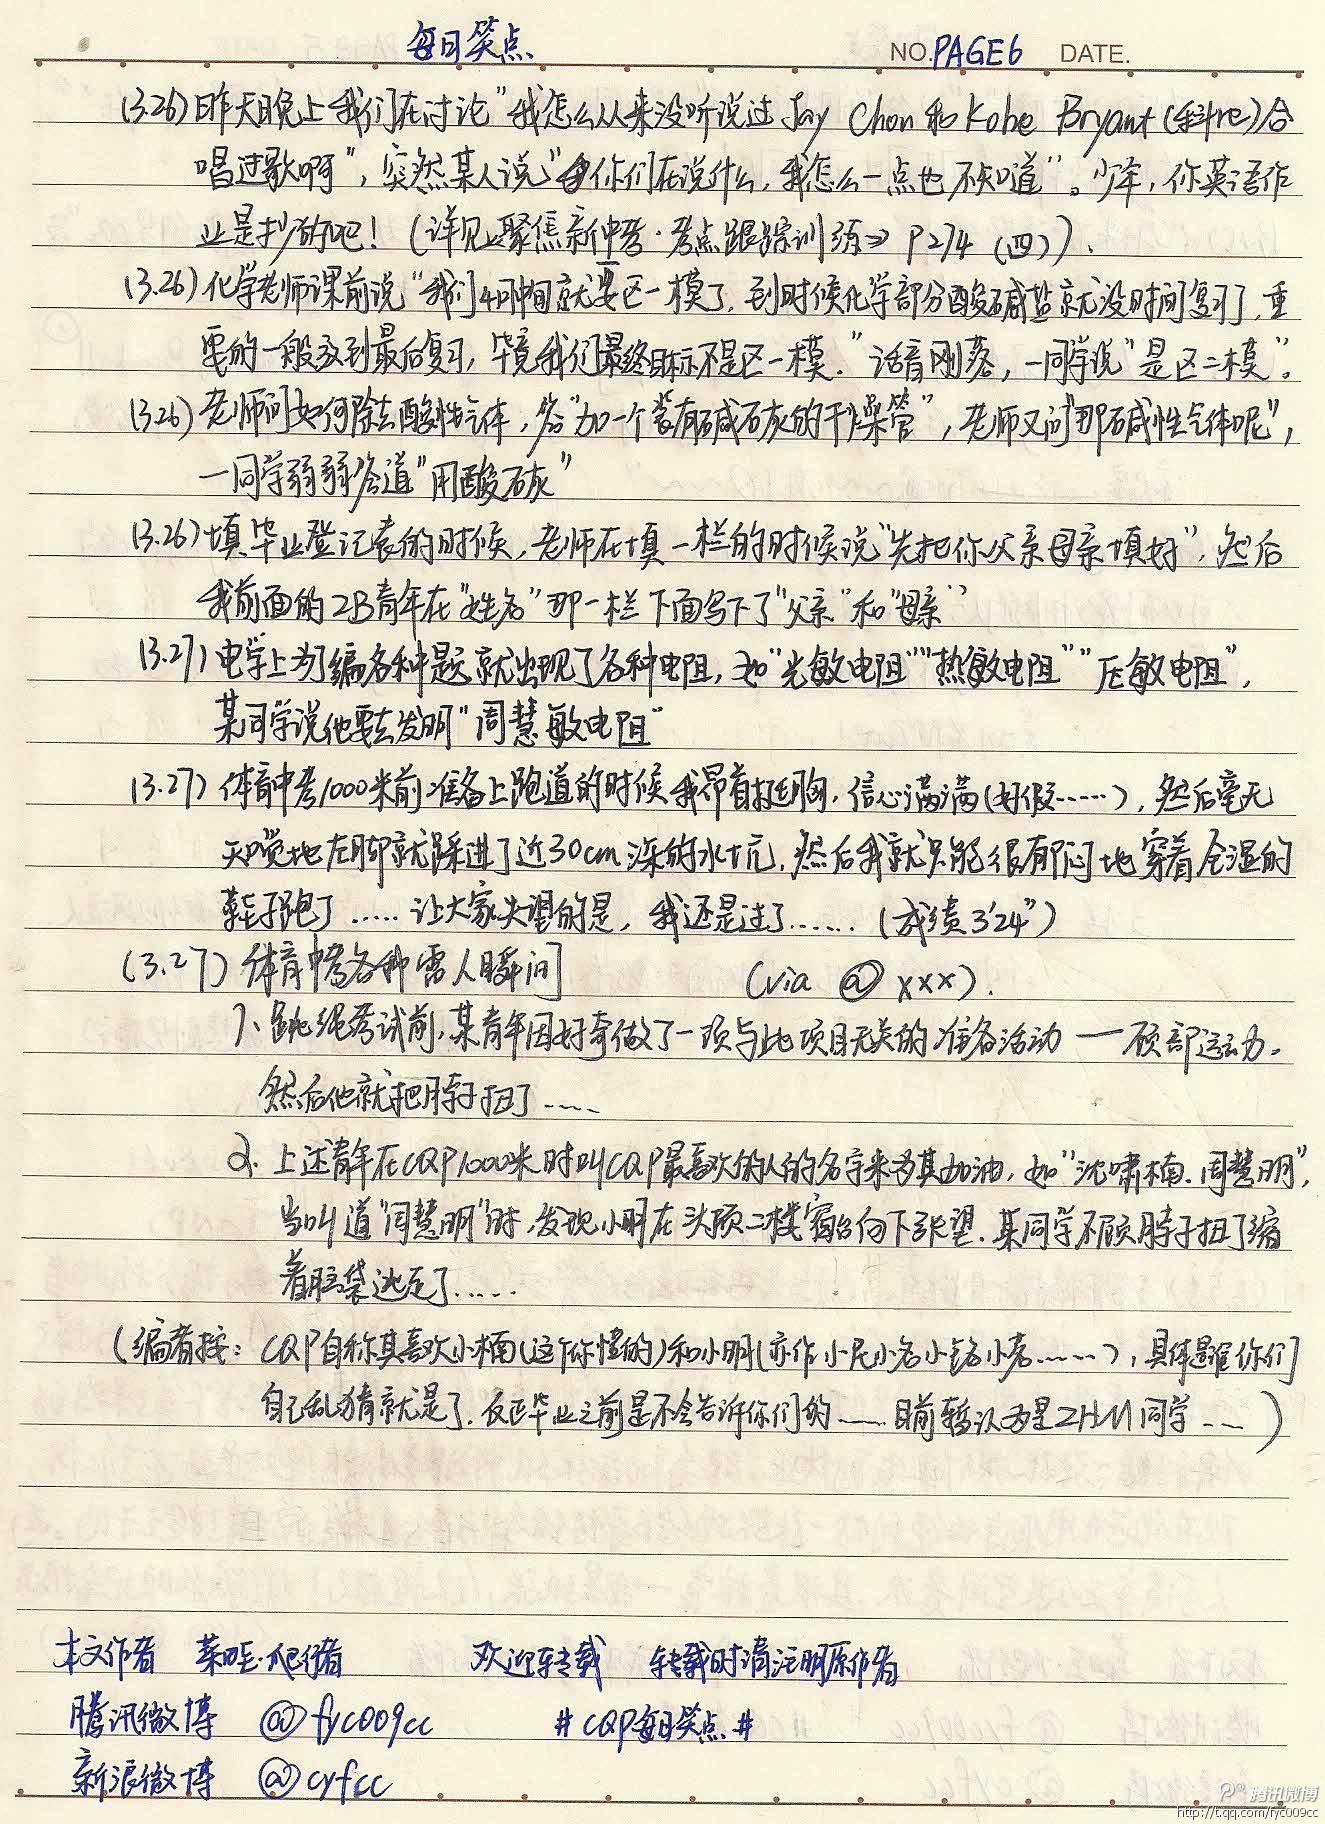 每日笑点
NO. PAGE6 DATE.
(3.26) 昨天晚上我们在讨论"我怎么从来没听说过Jay Chou和Kobe Bryant(科re)合
唱过歌啊",突然某人说"你们在说什么,我怎么一点也不知道"。少年,你英语作
业是抄的吧!(详见《聚焦新中考·考点跟踪训练》P274 (四)).
(3.26) 化学老师课前说"我们4月中旬就要区一模了,到时候化学部分酸碱盐就没时间复习了,重
要的一般放到最后复习,毕竟我们最终目标不是区一模."话音刚落,一同学说"是区二模"。
(3.26) 老师问如何除去酸性气体,答"加一个装有碱石灰的干燥管",老师又问"那碱性气体呢",
一同学弱弱答道"用酸石灰"
(3.26) 填毕业登记表的时候,老师在填一栏的时候说"先把你父亲母亲填好",然后
我前面的2B青年在"姓名"那一栏下面写下了"父亲"和"母亲"
(3.27) 电学上为了编各种题就出现了各种电阻,如"光敏电阻""热敏电阻""压敏电阻",
某同学说他要去发明"周慧敏电阻"
(3.27) 体育中考1000米前准备上跑道的时候我昂首挺胸,信心满满(好假……),然后毫无
知觉地左脚就踩进了近30cm深的水坑,然后我就只能很郁闷地穿着全湿的
鞋子跑了……让大家失望的是,我还是过了……(成绩3'24")
(3.27) 体育中考各种雷人瞬间 (via @xxx).
1、跳绳考试前,某青年因好奇做了一项与此项目无关的准备活动——颈部运动。
然后他就把脖子扭了……
2. 上述青年在CQP1000米时叫CQP最喜欢的人的名字来为其加油,如"沈啸楠、周慧明",
当叫道"周慧明"时,发现小明在头顶二楼窗台向下张望.某同学不顾脖子扭了缩
着脑袋逃走了……
(编者按:CQP自称其喜欢小楠(这个你懂的)和小明(亦作小民小名小铭小茗……),具体是谁你们
自己乱猜就是了.反正毕业之前是不会告诉你们的……目前暂认为是ZHM同学……)
本文作者 爬行者 欢迎转载 转载时请注明原作者
腾讯微博 @fyc009cc #CQP每日笑点#
新浪微博 @cyfcc
腾讯微博
http://t.qq.com/fyc009cc